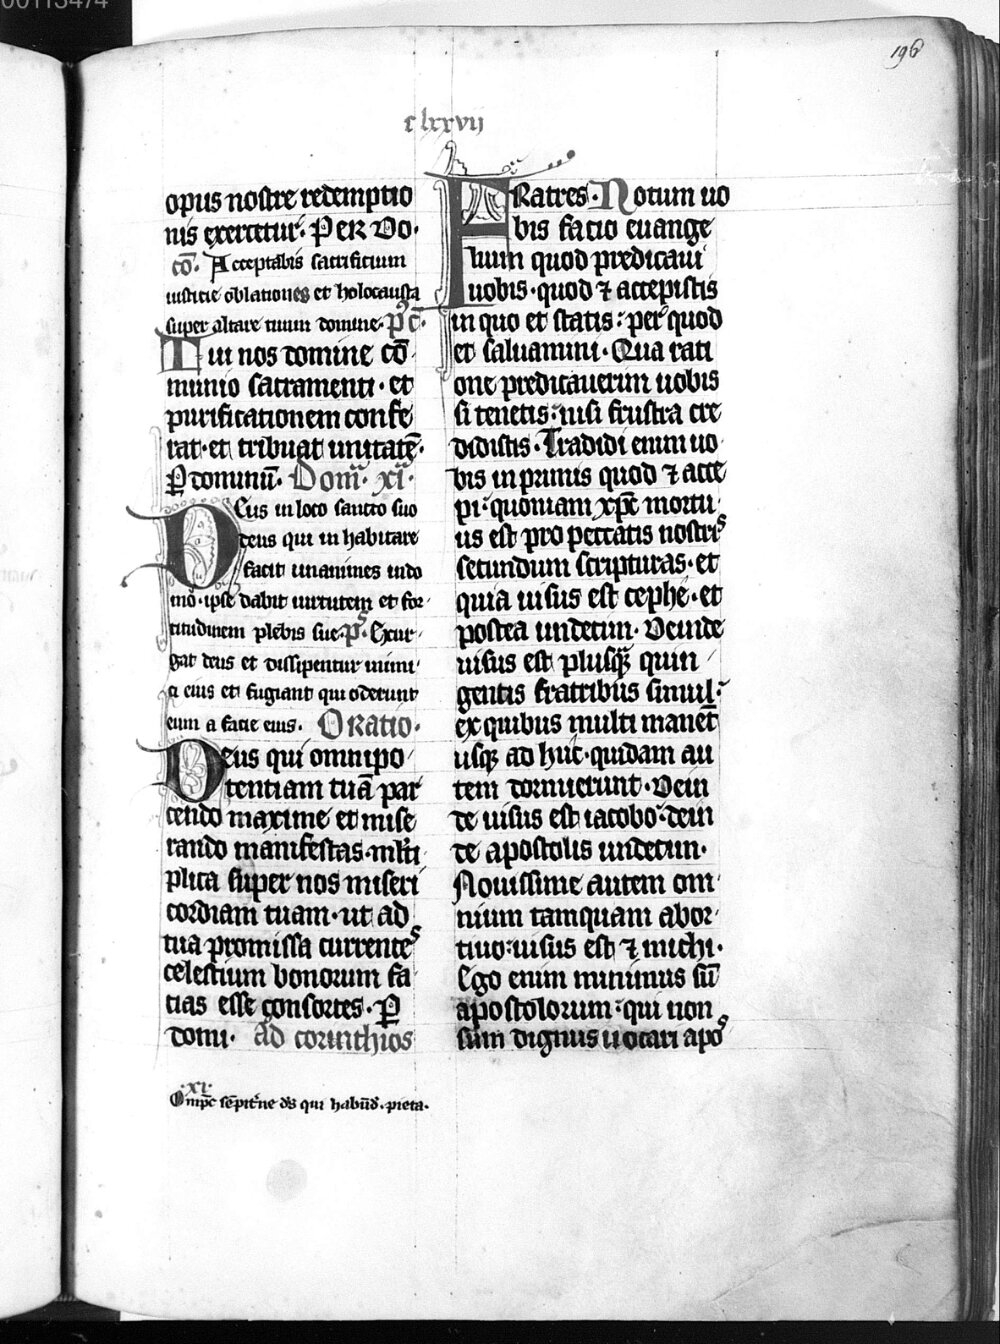 00113474
196
clxxvij
opus nostre redemptio
nis exercetur. Per Do.
cō. Acceptabis sacrificium
iusticie oblationes et holocausta
super altare tuum domine. p̄c̄.
Tui nos domine cō
munio sacramenti. et
purificationem confe
rat. et tribuat unitatē.
P dominū. Domī. xi.
Deus in loco sancto suo
deus qui in habitare
facit unanimes indo
mō. ipse dabit uirtutem et for
titudinem plebis sue. pˢ. Exur
gat deus et dissipentur inimi
ci eius et fugiant qui oderunt
eum a facie eius. Oratio.
Deus qui omnipo
tentiam tuā par
cendo maxime et mise
rando manifestas. mlti
plica super nos miseri
cordiam tuam. ut ad
tua promissa currentes
celestium bonorum fa
cias esse consortes. P
domi. ad corinthios
.xi.
Omp̄c sēpit'ne ds qui habūd. pieta.
Fratres. Notum uo
bis facio euange
lium quod predicaui
uobis. quod ⁊ accepistis
in quo et statis: per quod
et saluamini. Qua rati
one predicauerim uobis
si tenetis: nisi frustra cre
didistis. Tradidi enim uo
bis in primis quod ⁊ acce
pi. quoniam xp̄c mortu
us est pro peccatis nostris
secundum scripturas. et
quia uisus est cephe. et
postea undecim. Deinde
uisus est plusq̄ quin
gentis fratribus simul:
ex quibus multi manēt
usq; ad huc. quidam au
tem dormierunt. Dein
de uisus est iacobo. dein
de apostolis undecim.
Nouissime autem om
nium tamquam abor
tiuo: uisus est ⁊ michi.
Ego enim minimus sū
apostolorum: qui non
sum dignus uocari apos